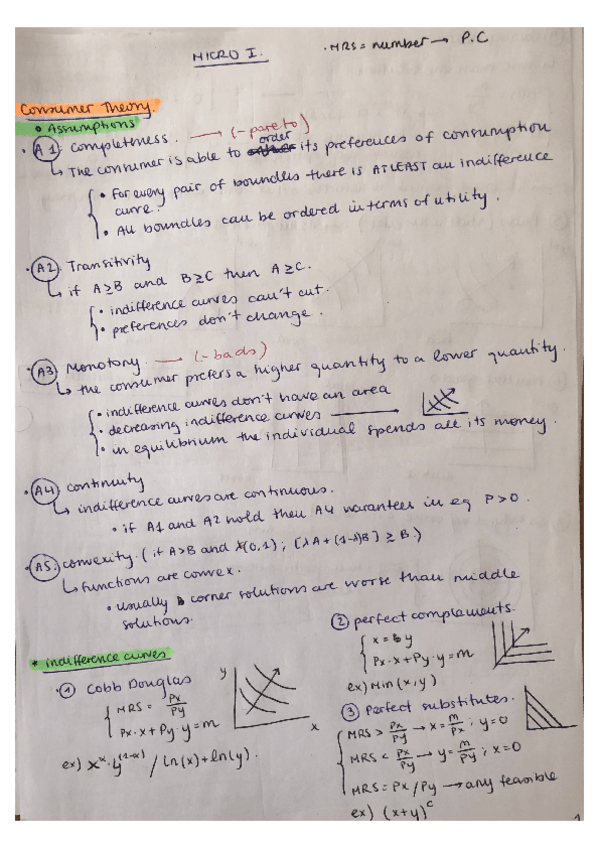 MICRO I.
· MRS = number → P.C
Consumer Theory.
• Assumptions
· A1) completeness. → (- pareto)
↳ The consumer is able to order its preferences of consumption
• For every pair of boundles there is AT LEAST an indifference
curve.
• All boundles can be ordered in terms of utility.
· A2) Transitivity
↳ if A≥B and B≥C then A≥C.
• indifference curves can't cut.
• preferences don't change.
· A3) Monotony → (- bads)
↳ the consumer prefers a higher quantity to a lower quantity.
• indifference curves don't have an area
• decreasing indifference curves →
• in equilibrium the individual spends all its money.
· A4) continuity
↳ indifference curves are continuous.
• if A1 and A2 hold then A4 warantees in eq P>0.
· A5: convexity. (if A>B and λ(0,1); [λA+(1-λ)B] ≥ B.)
↳ functions are convex.
• usually corner solutions are worse than middle
solutions.
* indifference curves
· ① Cobb Douglas
MRS = Px/Py
Px·x+Py·y=m
ex) x^α·y^(1-α) / ln(x)+ln(y).
y
x
② perfect complements.
x = by
Px·x+Py·y=m
ex) Min(x,y)
③ Perfect substitutes.
MRS > Px/Py → x = m/Px ; y=0
MRS < Px/Py → y = m/Py ; x=0
MRS = Px/Py → any feasible
ex) (x+y)^c